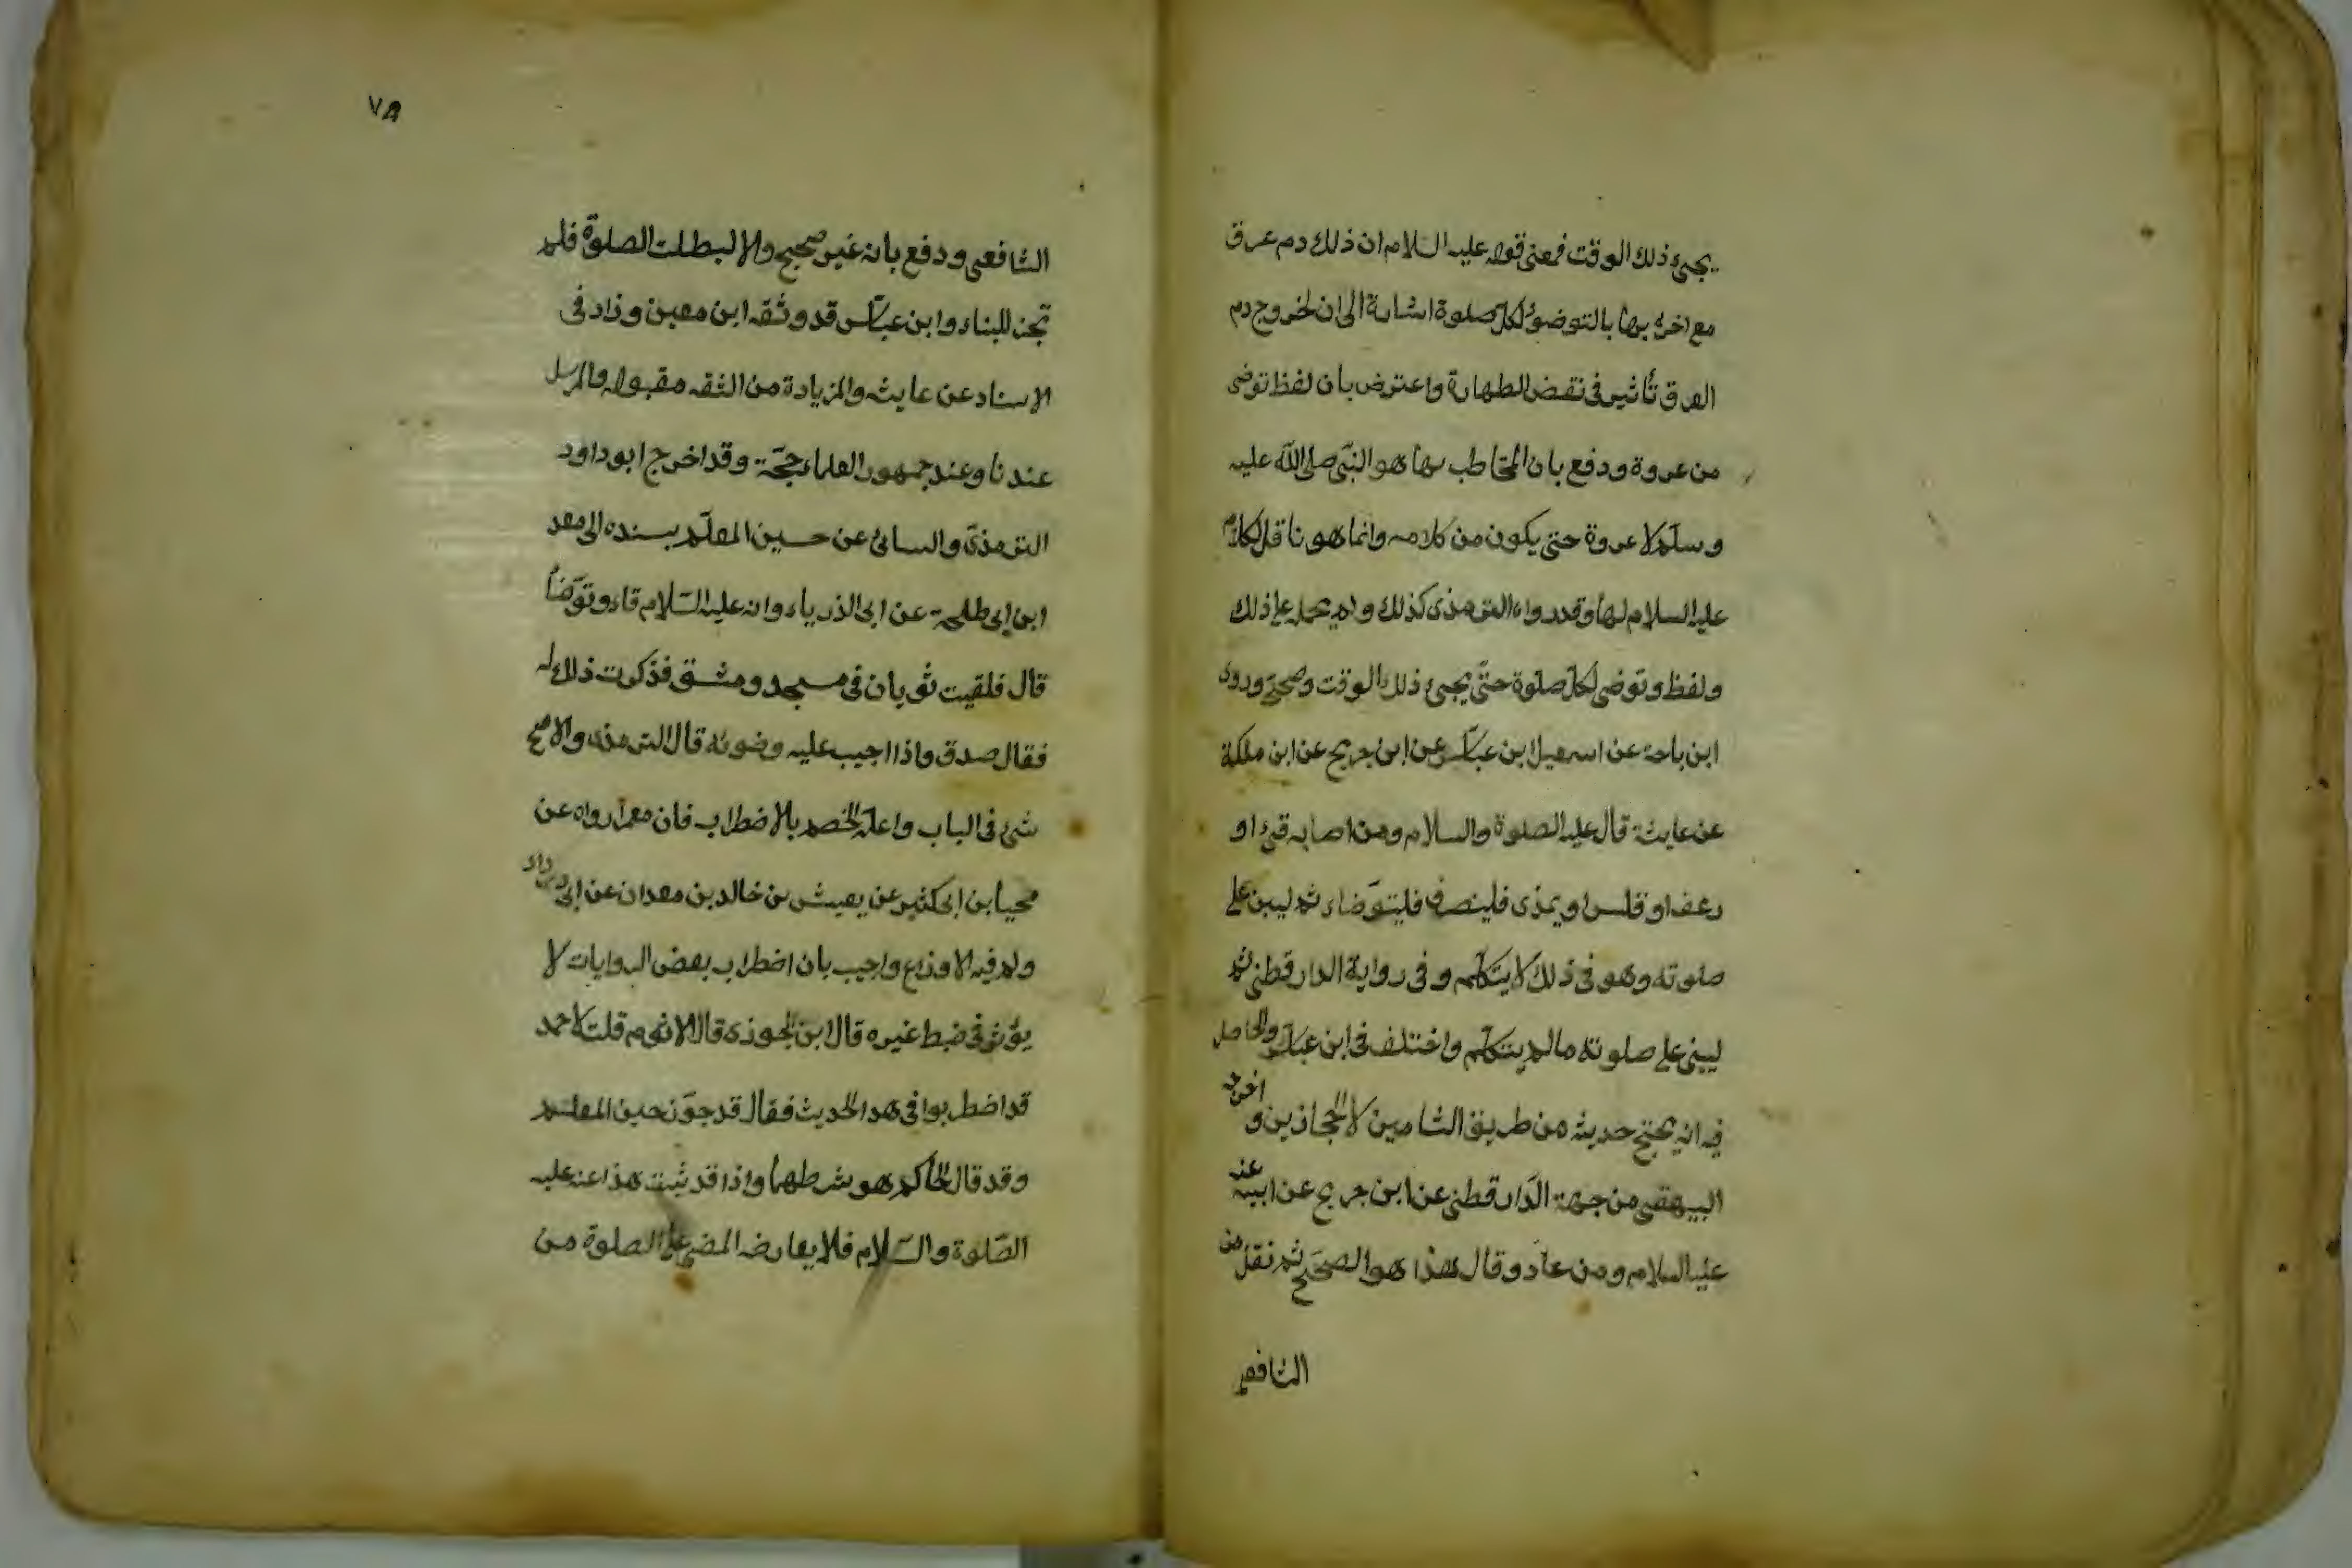 يجئ ذلك الوقت فمعنى قوله عليه السلام ان ذلك دم عرق
مع اخره بها بالتوضؤ لكل صلوة اشارة الى ان لخروج دم
العرق تأثير فى نقض الطهارة واعترض بان لفظ توضى
من عروة ودفع بان المخاطب بها هو النبى صلى الله عليه
وسلم لا عروة حتى يكون من كلامه وانما هو ناقل لكلام
عليه السلام لها وقدرواه الترمذى كذلك ولم يحمل على ذلك
ولفظ وتوضى لكل صلوة حتى يجئ ذلك الوقت وصحح وروى
ابن باحة عن اسمعيل ابن عباس عن ابن جريج عن ابن ملكية
عن عايشة قال عليه الصلوة والسلام ومن اصابه قئ او
رعف او قلس او يمذى فلينصرف فليتوضاء ثم ليبن على
صلوته وهو فى ذلك لا يتكلم وفى رواية الدارقطنى ثم
ليبنى على صلوته مالم يتكلم واختلف فى ابن عباس والحاصل
فيه انه يحتج حديثه من طريق الشاميين لا الحجازين واخرجه
البيهقى من جهة الدارقطنى عن ابن جريج عن ابيه عنه
عليه السلام ومن عاد وقال هذا هو الصحيح ثم نقل من
الشافعى
٧٨
الشافعى ودفع بانه غير صحيح والا لبطلت الصلوة فلم
تجز للبناء وابن عباس قد وثقه ابن معين وزاد فى
الاسناد عن عايشه والزيادة من الثقه مقبوله والمرسل
عندنا وعند جمهور العلماء حجة وقد اخرج ابوداود
الترمذى والسائى عن حسين المعلم بسنده الى معد
ابن ابى طلحة عن ابى الذرياء وانه عليه السلام قاء وتوضأ
قال فلقيت ثوبان فى مسجد ومشق فذكرت ذلك له
فقال صدق واذا اجيب عليه وضوئه قال الترمذى والاصح
شئ فى الباب واعله الخصم بالاضطراب فان معمرا رواه عن
محيا بن ابى كثير عن يعيش بن خالد بن معدان عن ابى درداء
ولم فيه الاوزاع واجيب بان اضطراب بعض الروايات لا
يؤثر فى ضبط غيره قال ابن الجوزى قال الاثرم قلت لاحمد
قد اضطربوا فى هدا الحديث فقال قد جوّز حين المعلم
وقد قال الحاكم هو شرطهما واذا قد ثبت هذا عنه عليه
الصلوة والسلام فلا يعارضه المضى على الصلوة من